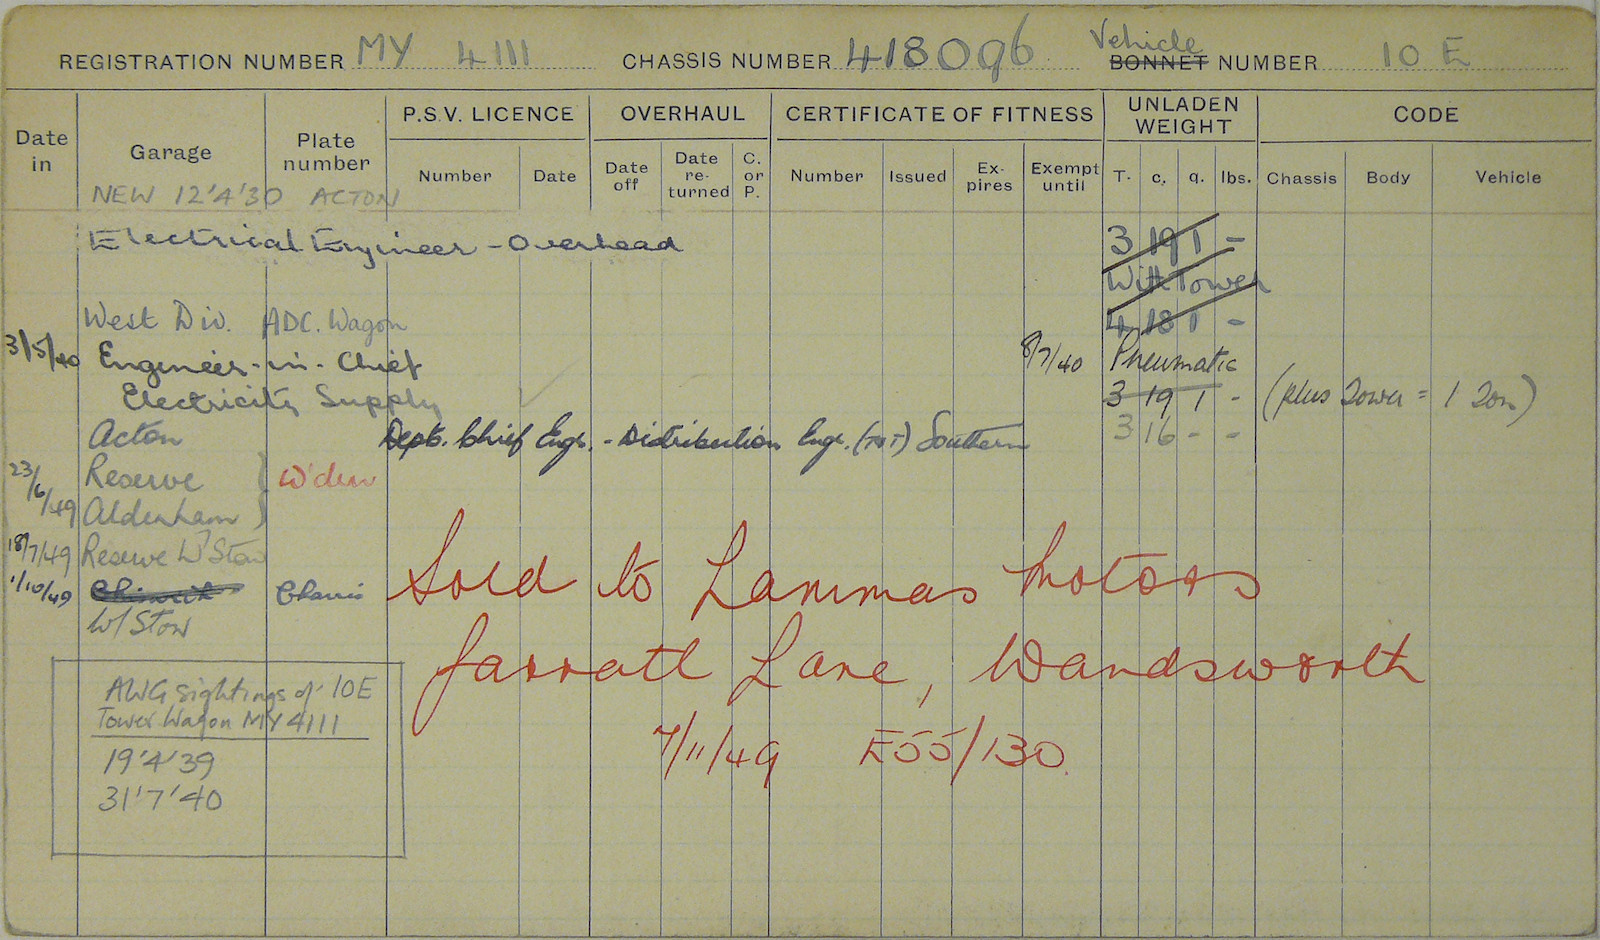 REGISTRATION NUMBER MY 4111 CHASSIS NUMBER 418096 Vehicle BONNET NUMBER 10 E
Date in Garage Plate number P.S.V. LICENCE OVERHAUL CERTIFICATE OF FITNESS UNLADEN WEIGHT CODE
Number Date Date off Date re-turned C. or P. Number Issued Ex-pires Exempt until T. c. q. lbs. Chassis Body Vehicle
NEW 12'4'30 ACTON
Electrical Engineer - Overhead 3 19 1 -
With Tower
West Div. ADC. Wagon 4 18 1 -
3/5/40 Engineer-in-Chief 8/7/40 Pneumatic
Electricity Supply 3 19 1 - (plus Tower = 1 Ton)
Acton Dept. Chief Engr. - Distribution Engr. (T&T) Southern 3 16 - -
23/6/49 Reserve } W'den
Aldenham
18/7/49 Reserve W'Stow
1/10/49 Chiswick Chassis Sold to Lammas Motors
W/Stow
Garratt Lane, Wandsworth
7/11/49 E55/130.
AWG sightings of 10E
Tower Wagon MY 4111
19'4'39
31'7'40